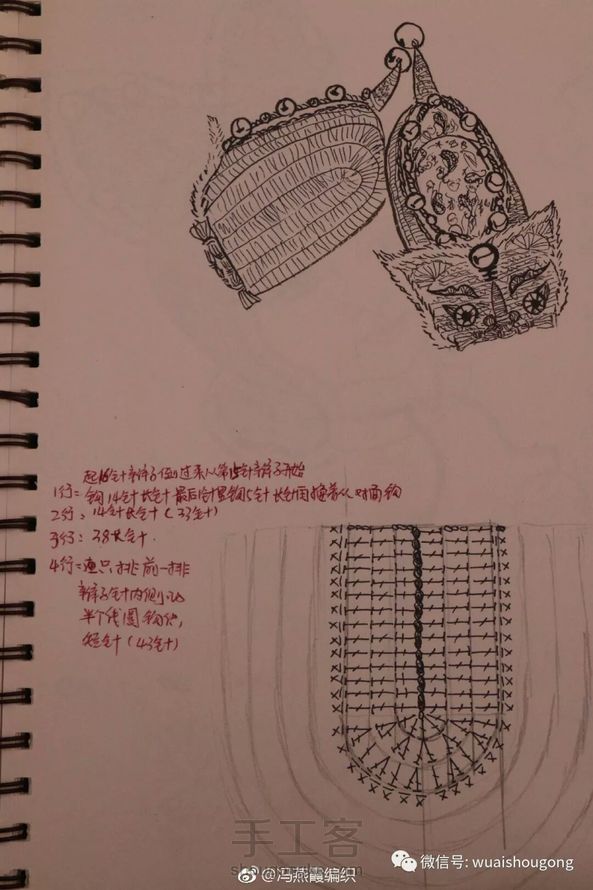 起16针辫子倒过来从第15针辫子开始
1行=钩14针长针最后1针里钩5针长针接着从对面钩
2行：14针长针（33针）
3行：38长针.
4行=这只挑前一排
辫子针内侧的
半个线圈钩织,
短针（43针）
手工客
@冯燕霞编织
微信号: wuaishougong